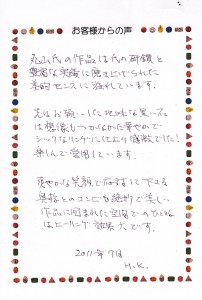 お客様からの声
丸山氏の作品は氏の研鑽と
豊富な実績に
美的センスに溢れています。
先は
は想像しつかなかった華やかで
シックなリングに仕上り感激でした!
楽しんで愛用しています。
爽やかな笑顔で応対して下さる
奥様とのコンビも絶妙で美しい
作品に囲まれた空間でのひととき
はヒーリング効果大です。
2011年7月
H.K.